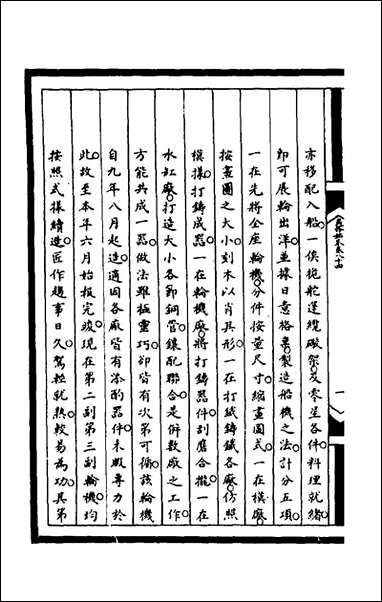 亦移配入船一俟桅舵篷纜礮架及零星各件料理就緒
即可展輪出洋並據日意格稟製造船機之法計分五項
一在先將全座輪機分件按童尺寸縮畫圖式一在模廠
按畫圖之大小刻木以肖其形一在打鐵鑄鐵各廠仿照
模樣打鑄成器一在輪機廠將打鑄器件刮磨合攏一在
水缸廠打造大小各節銅管鑲配聯合是併數廠之工作
方能共成一器做法雖極靈巧卻皆有次第可循該輪機
自九年八月起造適因各廠皆有添酌器件未暇專力於
此故至本年六月始報完竣現在第二副第三副輪機均
按照式樣續造匠作趨事日久駕輕就熟較易為功其第